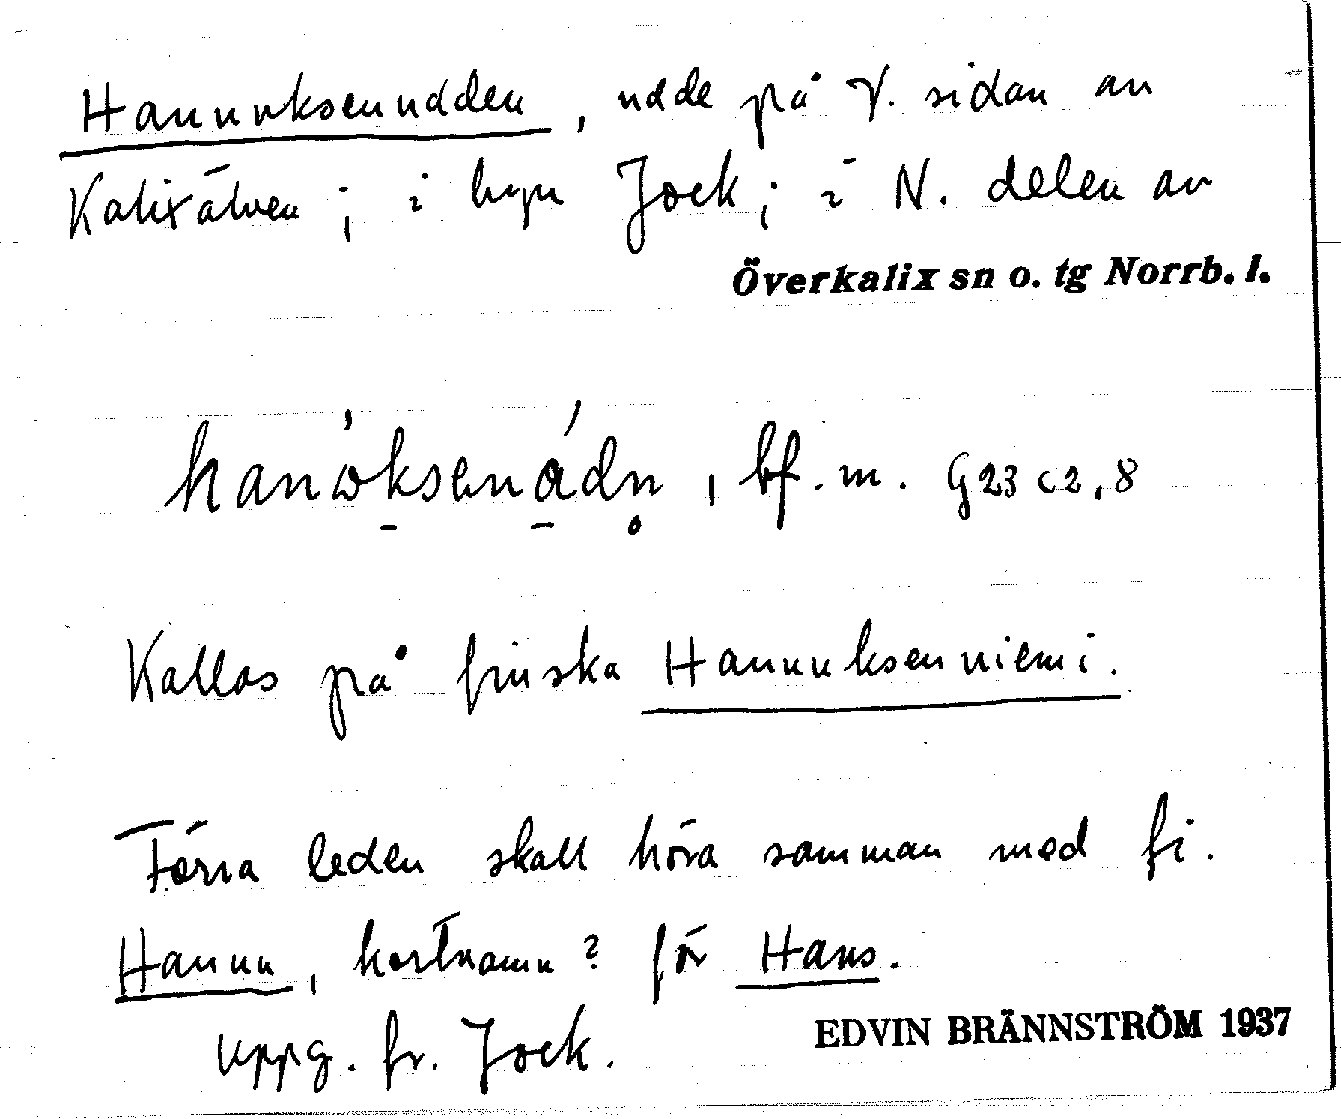 Hannuksenudden, udde på V. sidan av
Kalixälven; i byn Jock; i N. delen av
Överkalix sn o. tg Norrb. l.
bf. m. G23 c2,8
Kallas på finska Hannuksenniemi.
Förra leden skall höra samman med fi.
Hannu, kortnamn? för Hans.
Uppg. fr. Jock.
EDVIN BRÄNNSTRÖM 1937